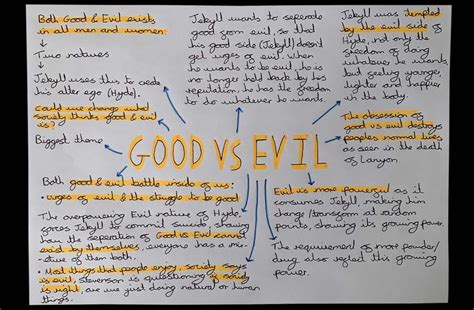 Both Good & Evil exists
in all men and women
Two natures
Jekyll uses this to create
his alter ego (Hyde).
could we change what
society thinks good & evil
is?
Biggest theme
Jekyll wants to seperate
good from evil, so that
his good side (Jekyll) doesn't
get urges of evil. When
he wants to be evil, he is
no longer held back by his
reputation, he has the freedom
to do whatever he wants.
Jekyll was tempted
by the evil side of
Hyde, not only the
freedom of doing
whatever he wants
but feeling younger,
lighter and happier
in the body.
The obsession of
good vs evil destroys
peoples normal lives
as seen in the death
of Lanyon
GOOD VS EVIL
Both good & evil battle inside of us:
• urges of evil & the struggle to be good
The overpowering Evil nature of Hyde,
forces Jekyll to commit suicide, showing
how the seperation of Good vs Evil cannot
exist by themselves, everyone has a mix-
ture of them both.
• Most things that people enjoy, society says
is evil, Stevenson is questioning if society
is right, are we just doing natural or human
things.
Evil is more powerful as it
consumes Jekyll, making him
change/transform at random
points, showing its growing power.
The requirement of more powder/
drug also reflect this growing
power.